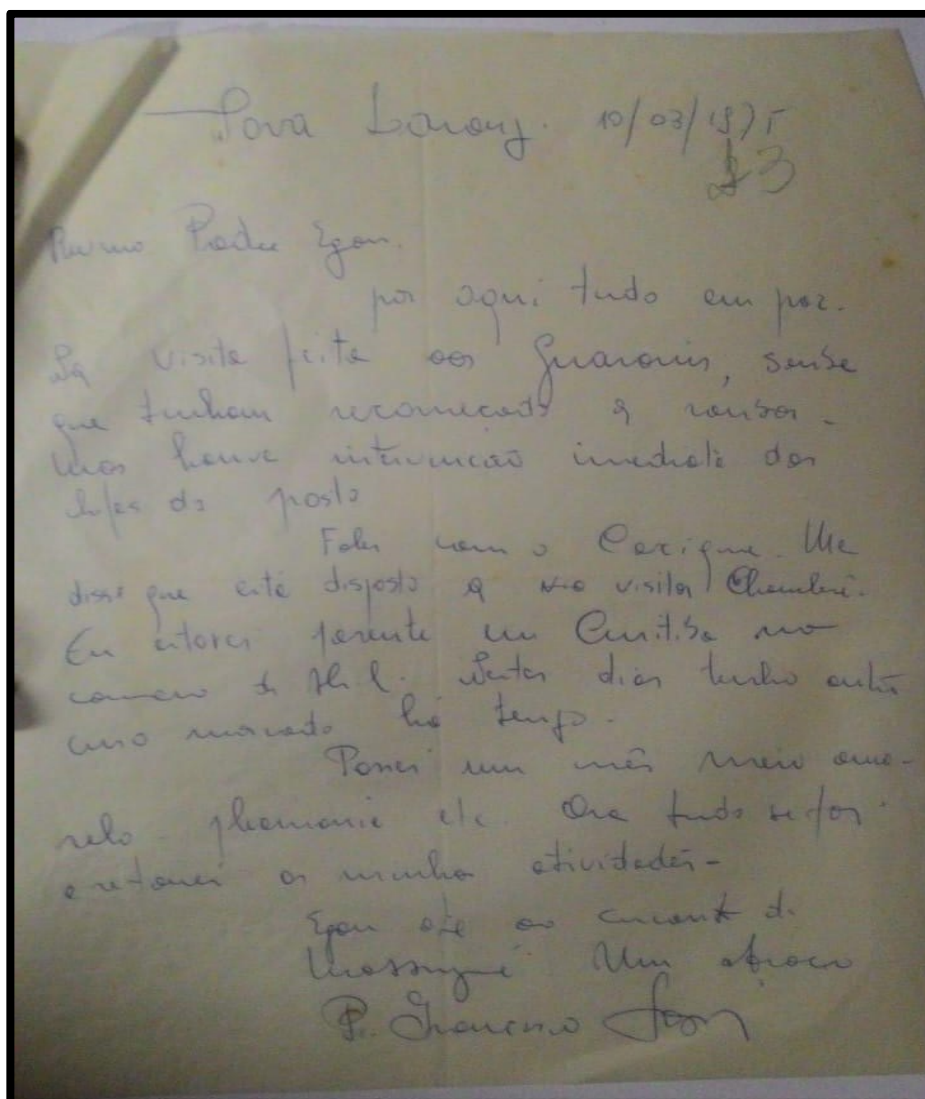 Nova Laranj. 10/03/1975
23
Revmo Padre Egon.
por aqui tudo em paz.
Na visita feita aos Guaranis, soube
que tinham recomeçado a
Mas houve intervenção imediata dos
chefes do posto
Falei com o Cacique. Me
disse que está disposto a visitar
Eu estarei em Curitiba no
começo de Abril. Nestes dias tenho outro
marcado há tempo.
Passei um mês meio ama-
relo - etc. Ora tudo se foi
e retomei as minhas atividades -
Egon até ao encontro de
Um abraço
P. Francisco